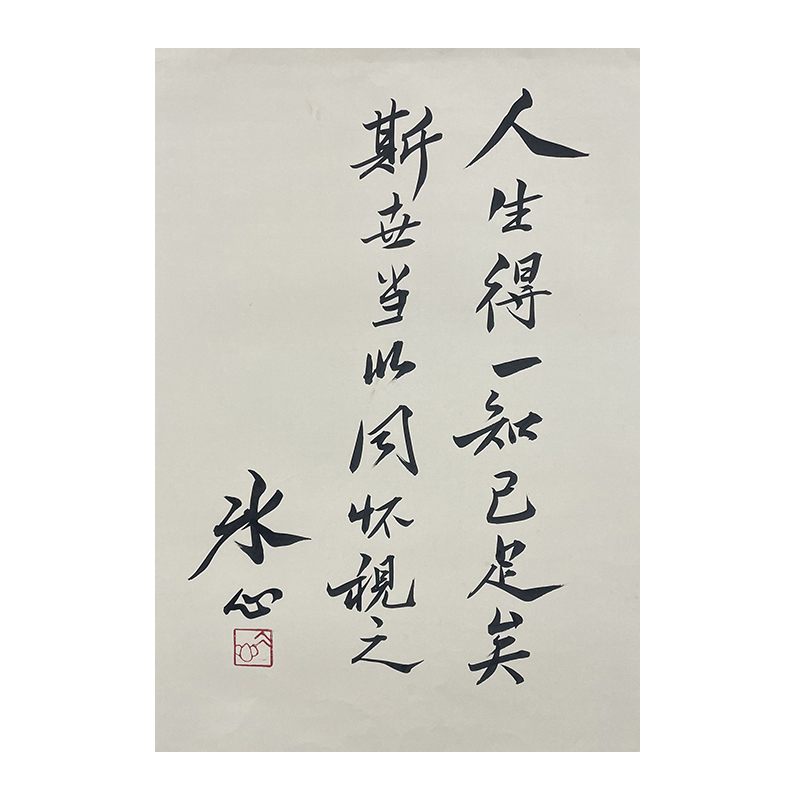 人生得一知己足矣
斯世当以同怀视之
冰心